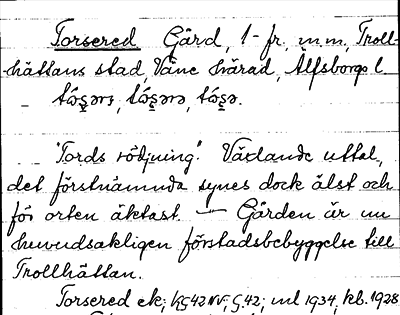 Torsered Gård, 1 fr. m.m., Troll-
hättans stad, Väne härad, Älfsborgs l.
"Tords rödjning". Växlande uttal,
det förstnämnda synes dock älst och
för orten äktast. — Gården är nu
huvudsakligen förstadsbebyggelse till
Trollhättan.
Torsered ek; kS42NV, G.42; ml 1934, kb. 1928